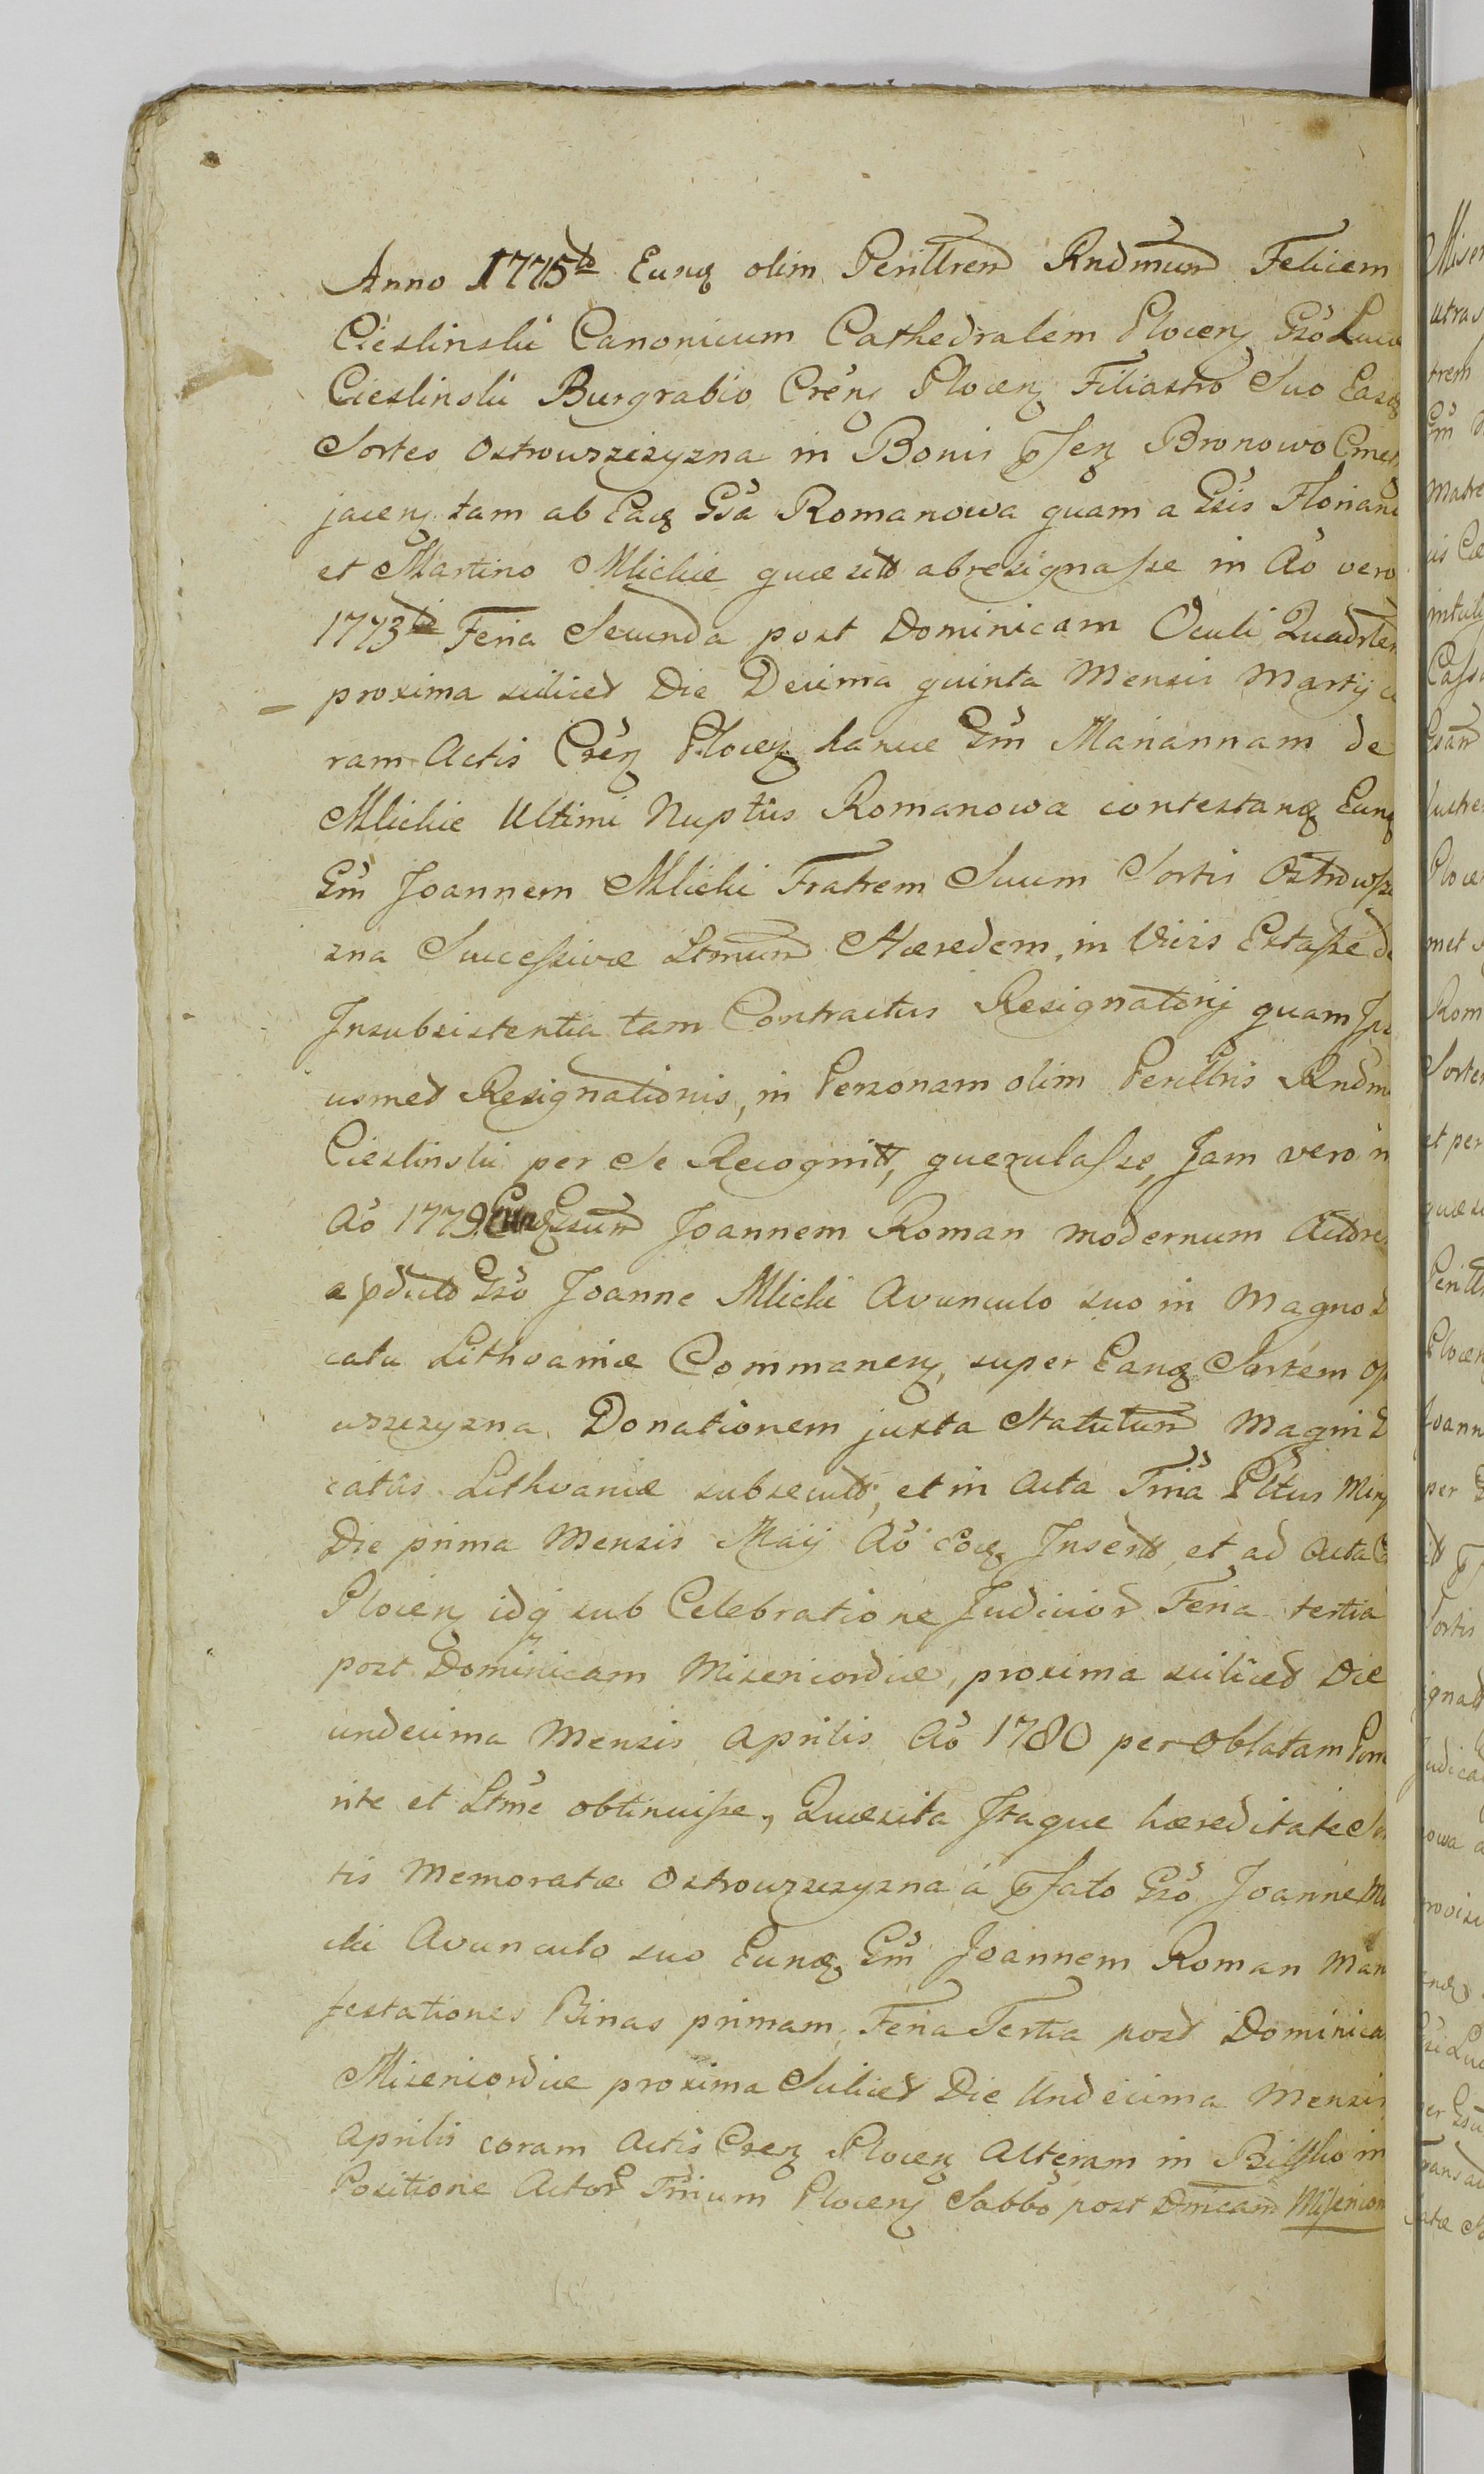 Anno 1775to Eunq olim Perillrem Rndmum Felicem
Cieslinski Canonicum Cathedralem Plocen Gso Luca
Cieslinski Burgrabio Cren Plocen Filiastro Suo Easd
Sortes Ostrowszczyzna in Bonis pſen Bronowo Cmet
jacen, tam ab Eaq Gsa Romanowa quam a Gsis Floriano
et Martino Mlickie quæsit abresignaſse in Ao vero
1773tio Feria Secunda post Dominicam Oculi Quadrlem
proxima scilicet Die Decima quinta Mensis Martij co
ram Actis Cren Plocen hancce Gm Mariannam de
Mlickie Ultimi Nuptiis Romanowa contestanq Eunq
Gm Joannem Mlicki Fratrem Suum Sortis Ostrowſzc
zna Succeſsivæ Ltmum Hæredem, in Vivis Extaſse de
Insubsistentia tam Contractus Resignatorij quam Ips
usmet Resignationis, in Personam olim Perillris Rndmi
Cieslinski per Se Recognit, querulaſse, Jam vero in
Ao 1779 Eunq Gsum Joannem Roman modernum Actore
a pdicto Gso Joanne Mlicki Avunculo suo in Magno D
catu Lithvaniæ Commanen, super Eanq Sortem Os
wszczyzna Donationem juxta Statutum Magni D
catûs Lithvaniæ subsecut, et in Acta Tria Pltus Min
Die prima Mensis Maij Ao eoq Insert et ad Acta C
Plocen idq sub Celebratione Judicior Feria tertia
post Dominicam Misericordiæ, proxima scilicet Die
undecima Mensis Aprilis Ao 1780 per Oblatam Porr
rite et Ltme obtinuiſse, Quæsita Itaque hæreditate Sor
tis Memoratæ Ostrowszczyzna á pſato Gso Joanne Ml
cki Avunculo suo Eunq Gm Joannem Roman Man
festationes Binas primam, Feria Tertia post Dominica
Misericordiæ proxima Scilicet Die Undecima Mensis
Aprilis coram Actis Cren Plocen Alteram in in
Positione Actor Trium Plocen Sabbo post Dnicam Misericor